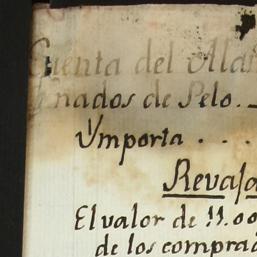 Cuenta del Alam
Enados de Pelo.
Ymporta . . .
Revaja
El valor de 11.00
de los comprad